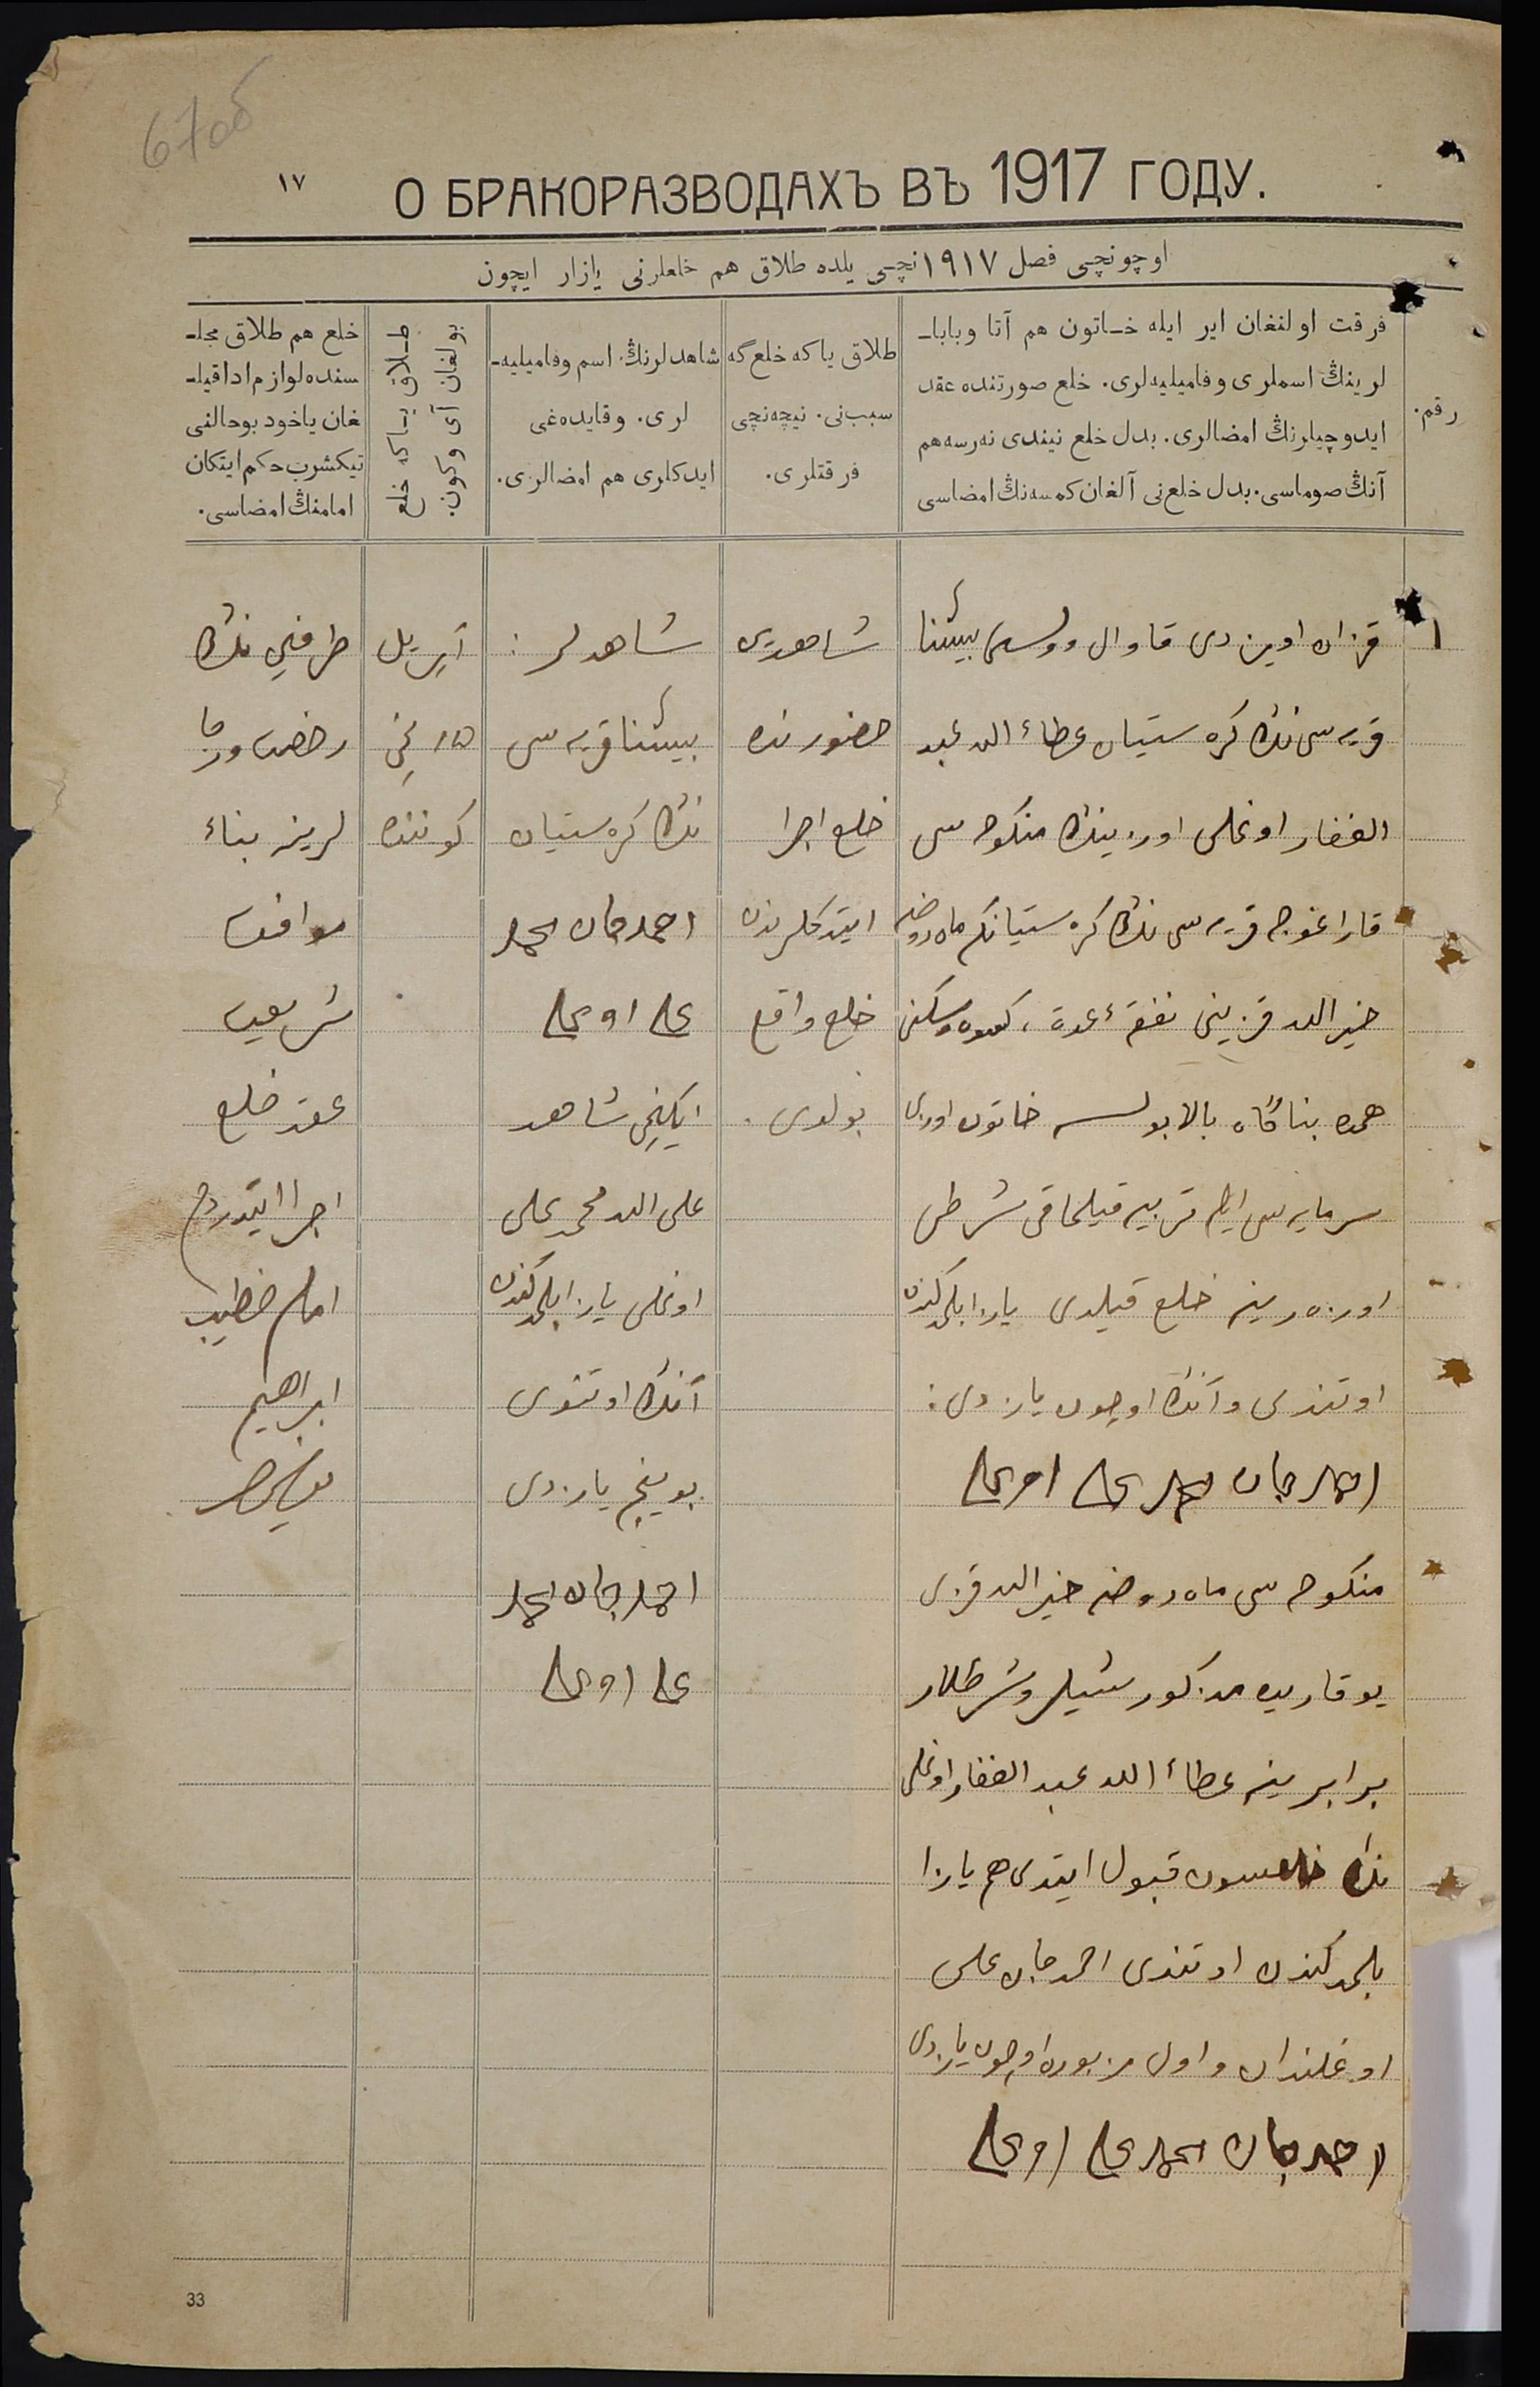 67об
١٧
О БРАКОРАЗВОДАХЪ ВЪ 1917 ГОДУ.
اوچونچی فصل ١٩١٧نچی یلده طلاق هم خلعلرنی یازار ایچون
رقم.
فرقت اولنغان ایر ایله خاتون هم آتا وبابا-
لرینڭ اسملری وفامیلیه‌لری. خلع صورتنده عقد
ایدوچیلرنڭ امضالری. بدل خلع نیندی نه‌رسه هم
آنڭ صوماسی. بدل خلع‌نی آلغان کمسه‌نڭ امضاسی
طلاق یا که خلع گه
سبب‌نی. نیچه‌نچی
فرقتلری.
شاهدلرنڭ اسم وفامیلیه-
لری. وقایده‌غی
ایدکلری هم امضالری.
طلاق یا که خلع
بولغان آی وکون.
خلع هم طلاق مجلـ
سنده لوازم ادا قیلـ
غان یاخود بو حالنی
تیکشرب حکم ایتکان
امامنڭ امضاسی.
١
قزان اوین دی قاوال وولسی بیشنا
قریه سی نڭ کره ستیان عطاء الله عبد
الغفار اوغلی اوزینڭ منکوحه سی
قارا غوجه قریه سی نڭ کره ستیانکه ماه روضه
خیر الله قزینی نفقهٔ عدة، کسوه وسکنی
همده بناگاه بالا بولسه خاتون اوزی
سرمایه سی ایله تربیه قیلماقی شرطی
اوزه رینه خلع قیلدی یازا بلمدکندن
اوتندی وآنڭ اوچون یازدی:
احمد جان محمد علی اوغلی
منکوحه سی ماه روضه خیر الله قزی
یوقاریده مذکور شیلر وشرطلار
برابرینه عطاء الله عبد الغفار اوغلی
نڭ قبول ایتدی هم یازا
بلمدکندن اوتندی احمد جان علی
اوغلندان واول مزبوره اوچون یازدی
احمد جان محمد علی اوغلی
شاهدیی
حضورنده
خلع اجرا
ایتدکلرندن
خلع واقع
بولدی.
شاهدلر:
بیشنا قریه سی
نڭ کره ستیان
احمد جان محمد
علی اوغلی
ایکنچی شاهد
علی الله محمد علی
اوغلی یازا بلمدکندن
آنڭ اوتنوی
بوینچه یازدی
احمد جان محمد
علی اوغلی
آپریل
١٥ نچی
کوننده
طرفینی نڭ
رضا
لرینه بناءً
موافق
شریعت
عقد خلع
اجرا ایتدردم
امام خطیب
ابراهیم
33